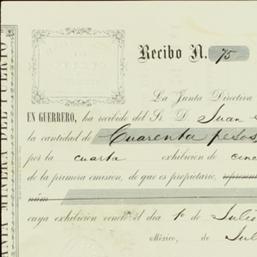 Recibo N. 75
La Junta Directiva
EN GUERRERO, ha recibido del Sr. D. Juan
la cantidad de Cuarenta pesos
por la cuarta exhibicion de cinc
de la primera emision, de que es propietario,
núm
cuya exhibicion venció el dia 1º de Julio
México, de Jul